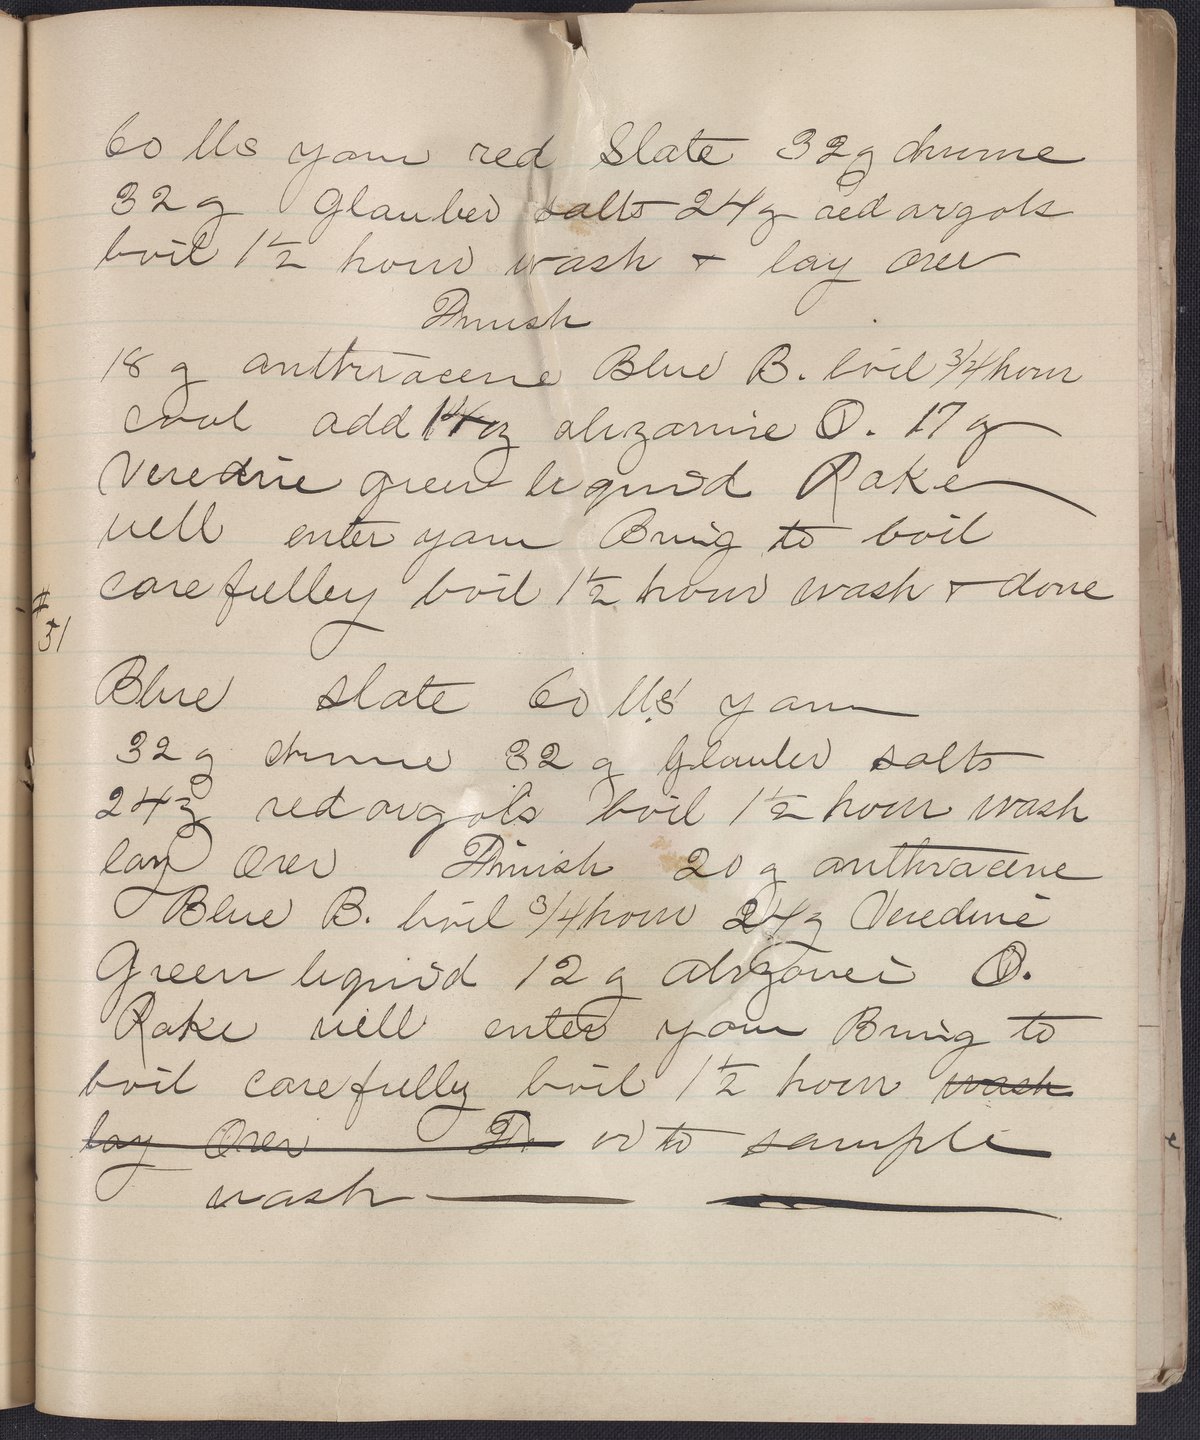 60 lbs yarn red Slate 32 g chrome
32 g Glauber salts 24 g red argols
boil 1 1/2 hour wash + lay over
Finish
18 g anthracene Blue B. boil 3/4 hour
cool add oz alizarine O. 17 g
Veredine green liquid Rake
well enter yarn Bring to boil
carefulley boil 1 1/2 hour wash + done
#
51
Blue slate 60 lbs yarn
32 g chrome 32 g Glauber salts
24 g red argols boil 1 1/2 hour wash
lay over Finish 20 g anthracene
Blue B. boil 3/4 hour 24 g Veredine
Green liquid 12 g O.
Rake well enter yarn Bring to
boil carefully boil 1 1/2 hour wash
lay over or to sample
wash